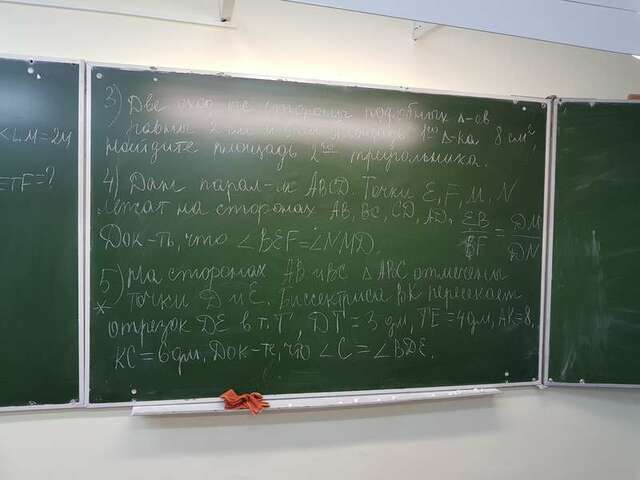 <LM=2M
ETF=?
3) Две сходств. стороны подобных Δ-ов
равны 2 см и 5 см, площадь 1го Δ-ка 8 см²,
найдите площадь 2го треугольника.
4) Дан парал-м ABCD. Точки E, F, M, N
лежат на сторонах AB, BC, CD, AD, EB/BF = DM/DN
Док-ть, что ∠BEF=∠NMD.
5)* На сторонах AB и BC Δ ABC отмечены
точки D и E. Биссектриса BK пересекает
отрезок DE в т. T, DT=3 дм, TE=4дм, AK=8,
KC=6дм, Док-ть, что ∠C = ∠BDE.